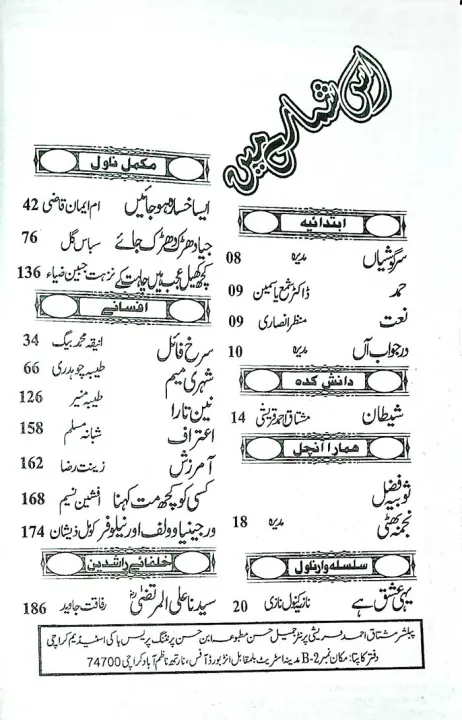 اس شمارے میں
ابتدائیہ
سرگوشیاں مدیرہ 08
حمد ڈاکٹر شمع یاسمین 09
نعت منظر انصاری 09
درجواب آں مدیرہ 10
دانش کدہ
شیطان مشتاق احمد قریشی 14
ہمارا آنچل
ثوبیہ فضل
نجمہ بھٹی مدیرہ 18
سلسلہ وار ناول
یہی عشق ہے نازیہ کنول نازی 20
مکمل ناول
ایسا خسارہ ہو جائیں ام ایمان قاضی 42
جیا دھڑک دھڑک جائے سباس گل 76
کچھ کھیل عجب ہیں چاہت کے نزہت جبین ضیاء 136
افسانے
سرخ فائل انیقہ محمد بیگ 34
شہری میم طیبہ چوہدری 66
نین تارا طیبہ منیر 126
اعتراف شبانہ مسلم 158
آمرزش زینت رضا 162
کسی کو کچھ مت کہنا افشین نسیم 168
ورجینیا وولف اور نیلوفر کومل ذیشان 174
خلفائے راشدین
سیدنا علی المرتضیٰؓ رفاقت جاوید 186
پبلشر مشتاق احمد قریشی پرنٹر جمیل حسن مطبوعہ ابن حسن پرنٹنگ پریس ہاکی اسٹیڈیم کراچی
دفتر کا پتا: مکان نمبر B-2 مدینہ اسٹریٹ بلمقابل انٹر بورڈ آفس، نارتھ ناظم آباد کراچی 74700